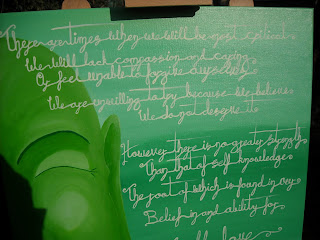 There are times when we will be most critical
We will lack compassion and caring
Or feel unable to forgive ourselves
We are unwilling to try because we believe
We do not deserve it
However there is no greater struggle
Than that of self knowledge
The root of which is found in our
Belief in and ability for
love